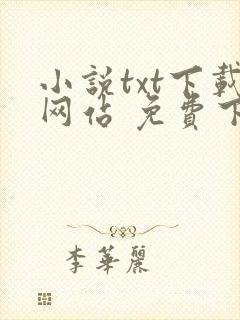 小説txt下載
网站 免費下
李華麗